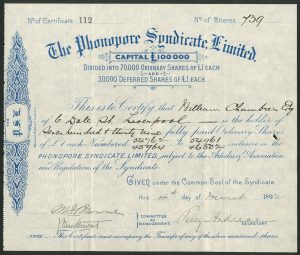 No of Certificate 112 No of Shares 739
The Phonopore Syndicate, Limited.
CAPITAL £100000
DIVIDED INTO 70,000 ORDINARY SHARES OF £1 EACH
AND
30000 DEFERRED SHARES OF £1 EACH.
This is to Certify that William Chamber Esq
of 6 Dale St Liverpool is the holder of
Seven hundred & thirty nine fully paid Ordinary Shares
of £1 each Numbered to inclusive in the
PHONOPORE SYNDICATE, LIMITED, subject to the Articles of Association
and Regulations of the Syndicate.
GIVEN under the Common Seal of the Syndicate
this 4th day of March 1892
COMMITTEE OF MANAGEMENT
SECRETARY.
NOTE.— This Certificate must accompany the Transfer of any of the above mentioned shares
P.S.L.